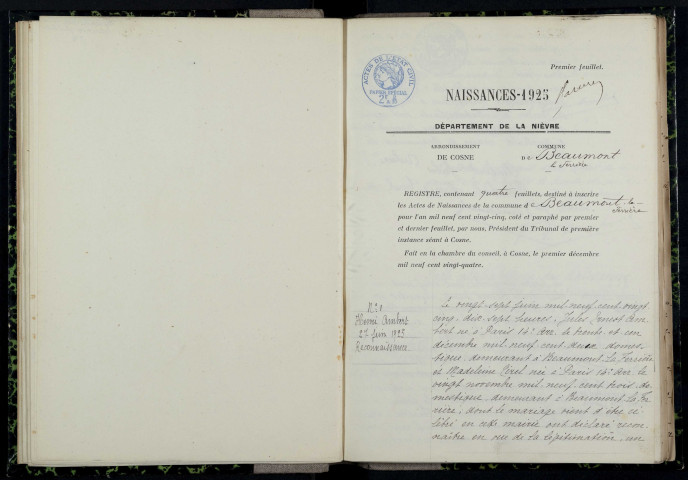 Premier feuillet.
ACTES DE L'ETAT CIVIL
PAPIER SPECIAL
NAISSANCES-1925
DÉPARTEMENT DE LA NIÈVRE
ARRONDISSEMENT
DE COSNE
COMMUNE
DE Beaumont
la Ferrière
REGISTRE, contenant quatre feuillets, destiné à inscrire
les Actes de Naissances de la commune de Beaumont-la-
Ferrière
pour l'an mil neuf cent vingt-cinq, coté et paraphé par premier
et dernier feuillet, par nous, Président du Tribunal de première
instance séant à Cosne.
Fait en la chambre du conseil, à Cosne, le premier décembre
mil neuf cent vingt-quatre.
N° 1
27 Juin 1925
Reconnaissance
Le vingt-sept Juin mil neuf cent vingt
cinq, dix-sept heures, Jules
né à Paris 14e Arr. le trente et un
décembre mil neuf cent domes
tique, demeurant à Beaumont La Ferrière
et Madeleine née à Paris 14e Arr. le
vingt novembre mil neuf cent trois do
mestique, demeurant à Beaumont La Fer
rière, dont le mariage vient d'être cé
lébré en cette mairie ont déclaré recon
naître en vue de la légitimation, un